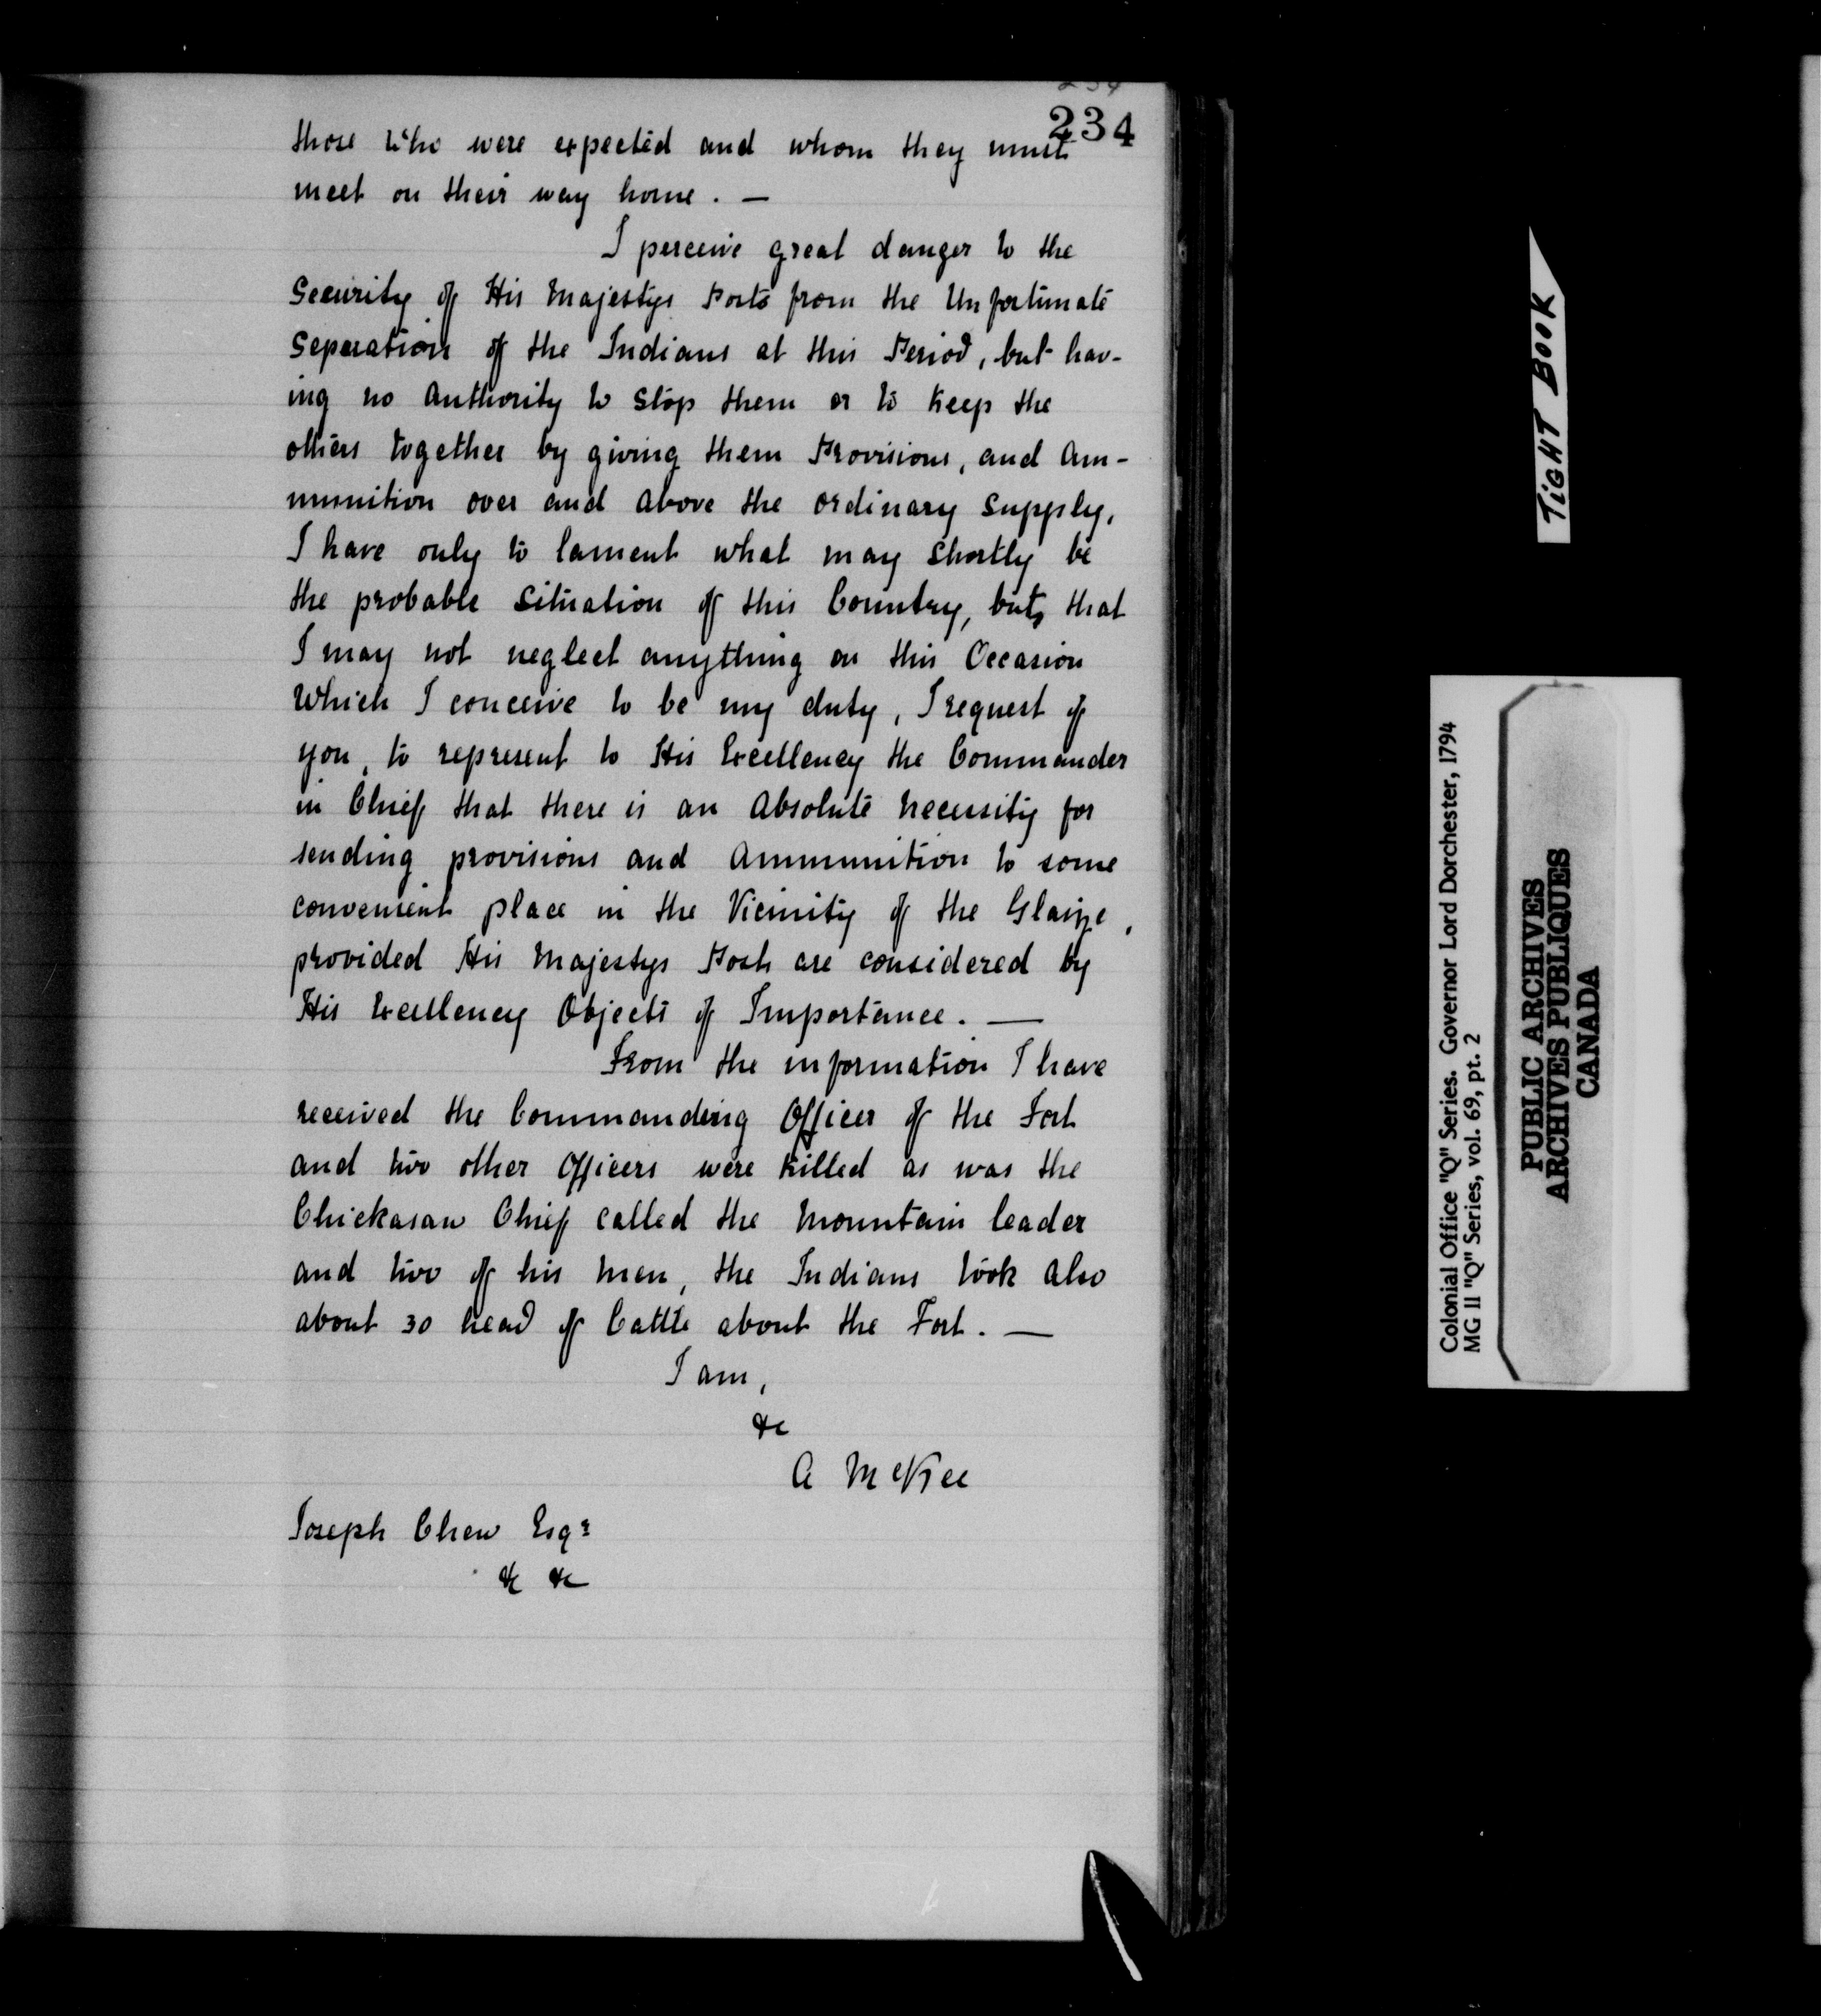 234
those who were expected and whom they must
meet on their way home. —
I perceive great danger to the
Security of His Majestys Posts from the Unfortunate
Separation of the Indians at this Period, but hav-
ing no Authority to Stop them or to Keep the
others together by giving them Provisions, and Am-
munition over and above the ordinary Supply,
I have only to lament what may Shortly be
the probable Situation of this Country, but, that
I may not neglect anything on this Occasion
Which I conceive to be my duty, I request of
you, to represent to His Excellency the Commander
in Chief that there is an Absolute Necessity for
sending provisions and Ammunition to some
convenient place in the Vicinity of the Glaize,
provided His Majestys Posts are considered by
His Excellency Objects of Importance. —
From the information I have
received the Commanding Officer of the Fort
and two other Officers were Killed as was the
Chickasaw Chief called the Mountain leader
and two of his Men, the Indians took also
about 30 head of Cattle about the Fort. —
I am,
&c
A McKee
Joseph Chew Esqr
&c &c
TIGHT BOOK
Colonial Office "Q" Series. Governor Lord Dorchester, 1794
MG 11 "Q" Series, vol. 69, pt. 2
PUBLIC ARCHIVES
ARCHIVES PUBLIQUES
CANADA